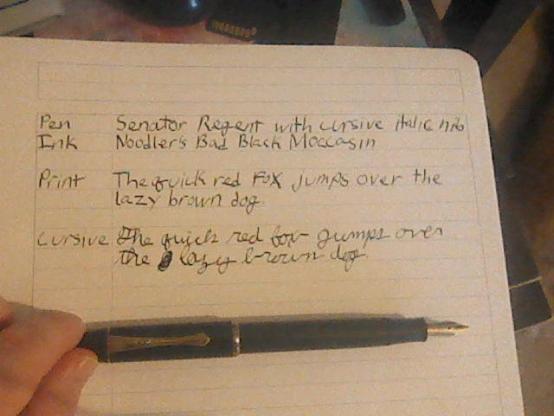 Pen Senator Regent with cursive italic nib
Ink Noodler's Bad Black Moccasin
Print The quick red fox jumps over the
lazy brown dog.
Cursive The quick red fox jumps over
the lazy brown dog.